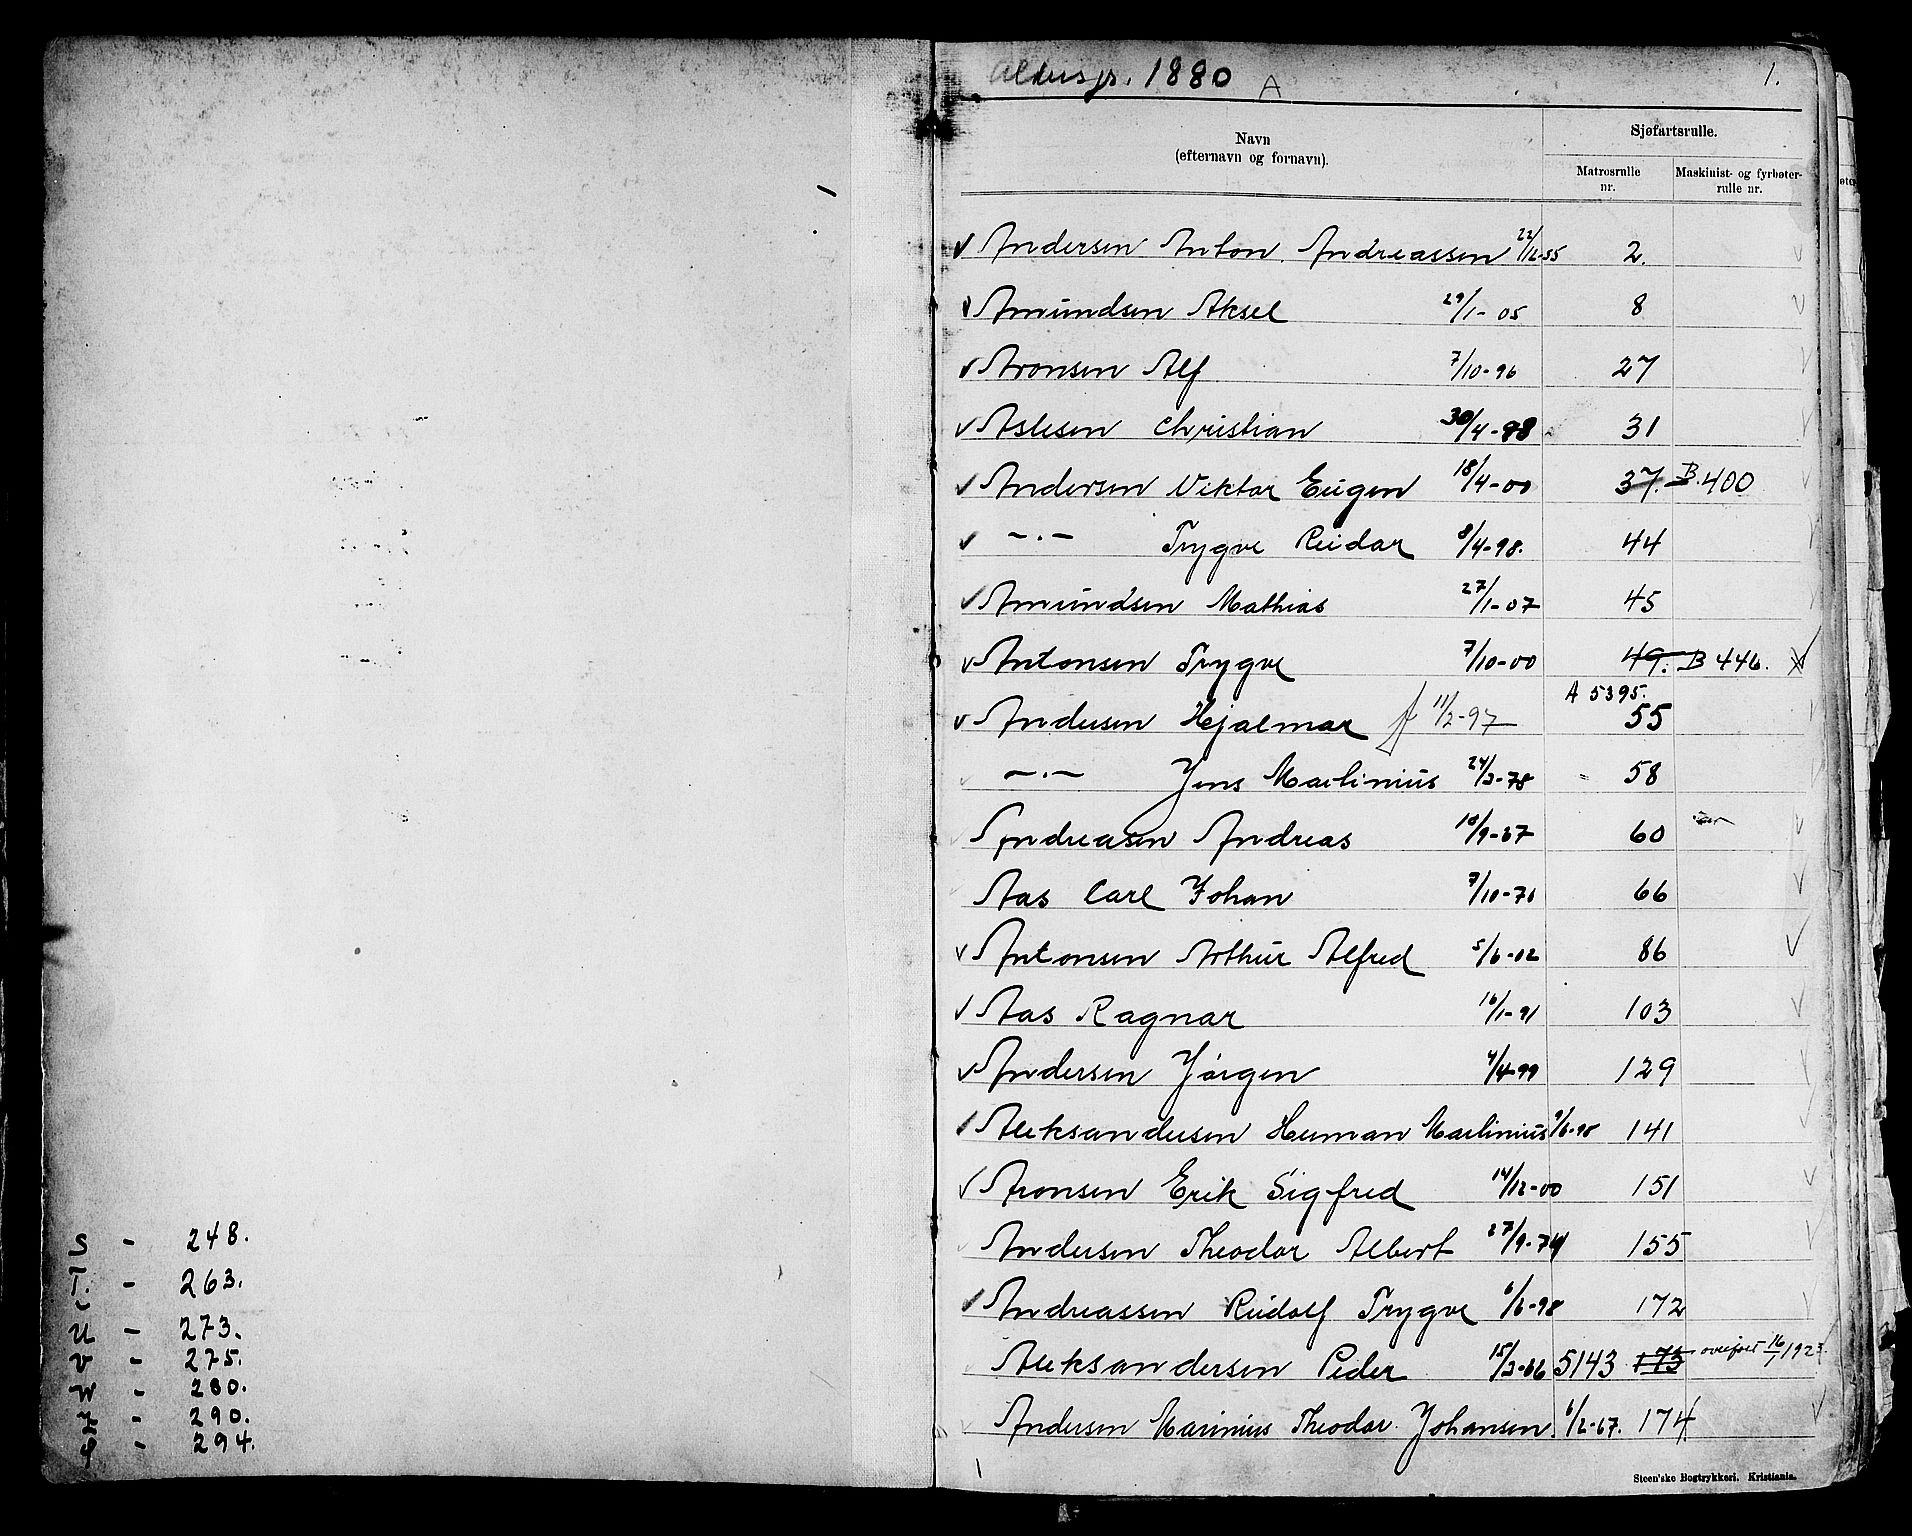 S - 248.
T. - 263.
U - 273.
V - 275.
W - 280.
- 290.
- 294.
1880 A 1.
Navn
(efternavn og fornavn).
Sjøfartsrulle.
Matrosrulle
nr.
Maskinist- og fyrbøter-
rulle nr.
Andersen Anton Andreassen 22/12-55 2.
Amundsen Aksel 29/1-05 8
Aronsen Alf 7/10-96 27
Aslesen Christian 30/4-98 31
Andersen Viktor Eugen 18/4-00 37. B.400
-.- Trygve Reidar 8/4-98. 44
Amundsen Mathias 27/1-07 45
Antonsen Trygve 7/10-00 49. B 446.
A 5395.
Andersen Hjalmar 11/2-97 55
-.- Jens Martinius 24/2-78 58
Andreasen Andreas 10/9-67 60
Aas Carl Johan 7/10-70 66
Antonsen Arthur Alfred 5/6-02 86
Aas Ragnar 16/1-91 103
Andersen Jørgen 4/4-99 129
Aleksandersen Herman Martinius 9/6-98 141
Aronsen Erik Sigfred 14/12-00 151
Andersen Theodor Albert 27/9-74 155
Andreassen Rudolf Trygve 6/6-98 172
Aleksandersen Peder 15/2-66 5143 173 overført 16/1 192
Andersen Marinius Theodor Johansen 6/2-67. 174
Steen'ske Bogtrykkeri. Kristiania.